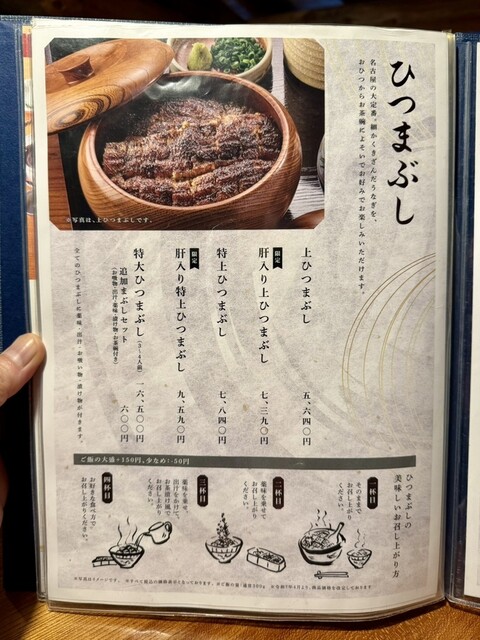 ひつまぶし
名古屋の大定番。細かくきざんだうなぎを、
おひつからお茶碗によそいでお好みでお楽しみいただけます。
※写真は、上ひつまぶしです。
上ひつまぶし 五、六四〇円
限定
肝入り上ひつまぶし 七、三九〇円
特上ひつまぶし 七、八四〇円
限定
肝入り特上ひつまぶし 九、五九〇円
特大ひつまぶし(3〜4人前) 一六、五〇〇円
追加まぶしセット 六〇〇円
(お吸物・出汁・薬味・漬け物・お茶碗付き)
全てのひつまぶしに薬味、出汁、お吸い物、漬け物が付きます。
ご飯の大盛+150円、少なめ-50円
ひつまぶしの
美味しいお召し上がり方
一杯目
そのままで
お召し上がり
ください。
二杯目
薬味を乗せて
お召し上がり
ください。
三杯目
薬味を乗せ、
出汁をかけて、
お茶漬け風で
お召し上がり
ください。
四杯目
お好きな食べ方で
お召し上がりください。
※写真はイメージです。 ※すべて税込の価格表示となっております。